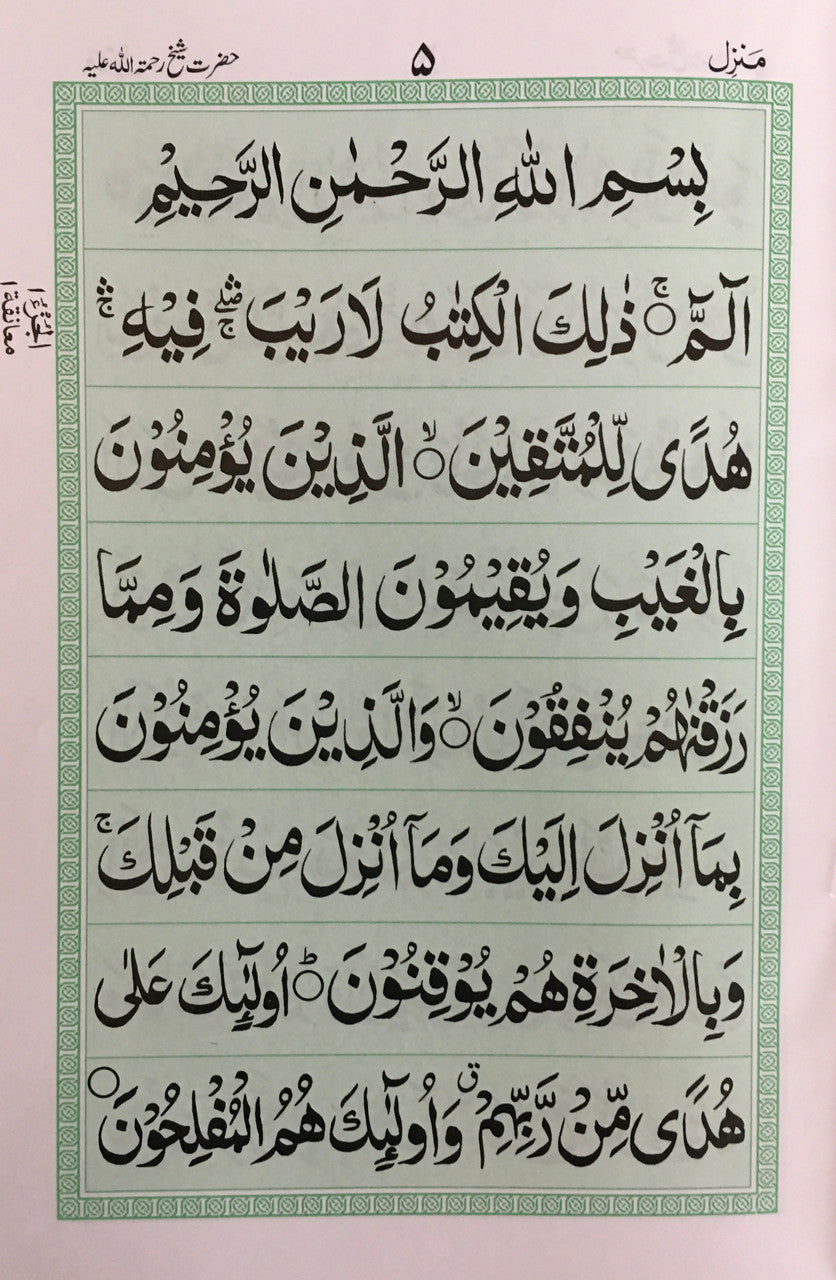 مَنزِل ۵ حضرت شیخ رحمۃ اللہ علیہ
بِسْمِ اللّٰهِ الرَّحْمٰنِ الرَّحِيْمِ
الٓمّٓ ۚ○ ذٰلِكَ الْكِتٰبُ لَا رَيْبَ ۛۖۚ فِيْهِ ۛۚ
هُدًى لِّلْمُتَّقِيْنَ ۙ○ الَّذِيْنَ يُؤْمِنُوْنَ
بِالْغَيْبِ وَيُقِيْمُوْنَ الصَّلٰوةَ وَمِمَّا
رَزَقْنٰهُمْ يُنْفِقُوْنَ ۙ○ وَالَّذِيْنَ يُؤْمِنُوْنَ
بِمَآ اُنْزِلَ اِلَيْكَ وَمَآ اُنْزِلَ مِنْ قَبْلِكَ ۚ
وَبِالْاٰخِرَةِ هُمْ يُوْقِنُوْنَ ؕ○ اُولٰٓئِكَ عَلٰى
هُدًى مِّنْ رَّبِّهِمْ ق وَاُولٰٓئِكَ هُمُ الْمُفْلِحُوْنَ ○
الجزء ۱
معانقة ۱